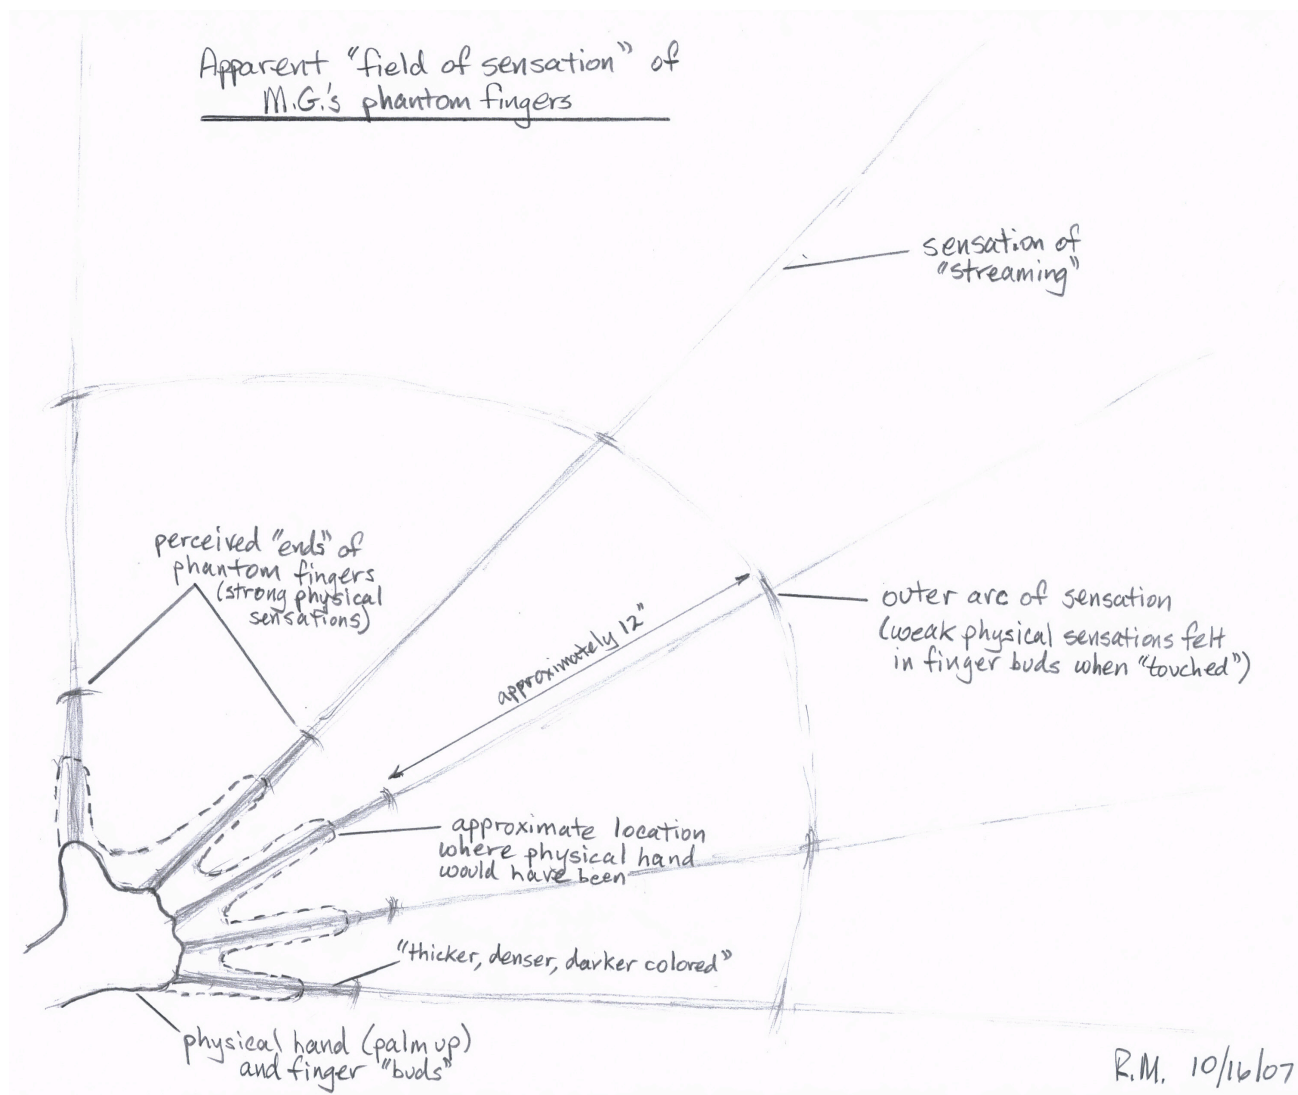 Apparent "field of sensation" of
M.G.'s phantom fingers
sensation of
"streaming"
perceived "ends" of
phantom fingers
(strong physical
sensations)
approximately 12"
outer arc of sensation
(weak physical sensations felt
in finger buds when "touched")
approximate location
where physical hand
would have been
"thicker, denser, darker colored"
physical hand (palm up)
and finger "buds"
R.M. 10/16/07